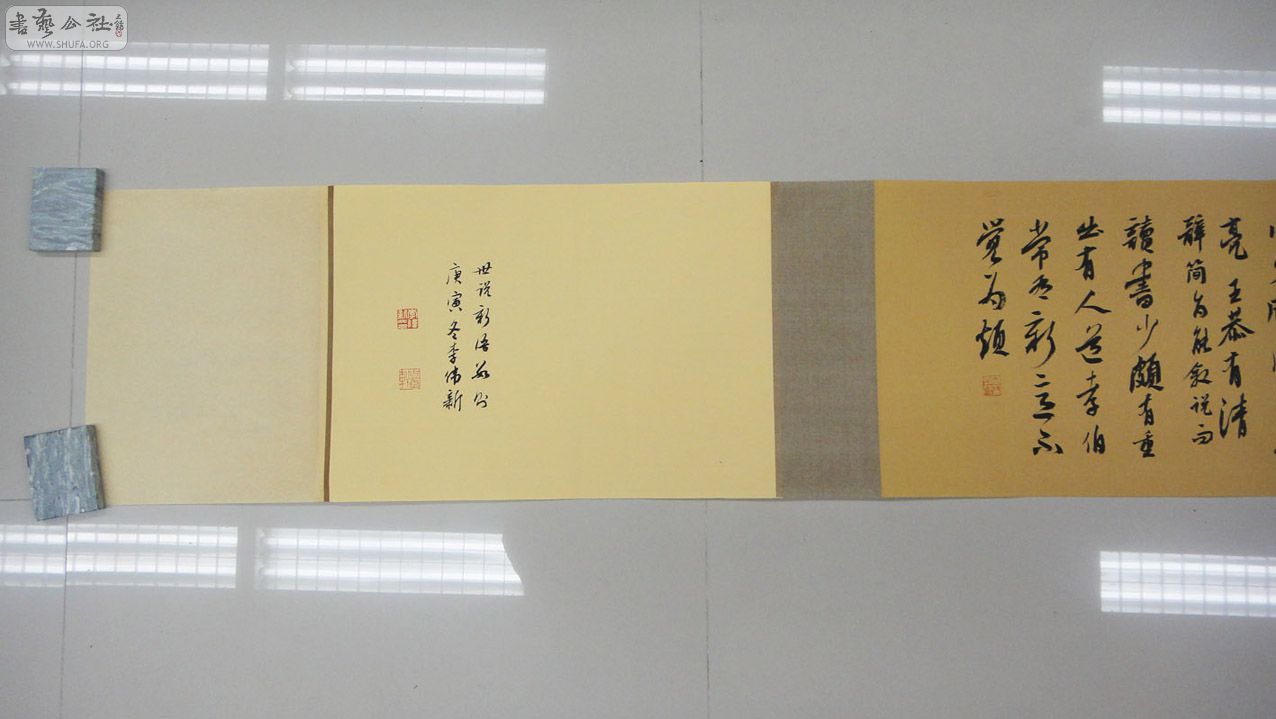 書藝公社
WWW.SHUFA.ORG
亮 王恭有清
辞简旨能叙说而
讀書少頗有重
出有人道孝伯
常有新意不
覺為煩
世说新语数则
庚寅冬李伟新